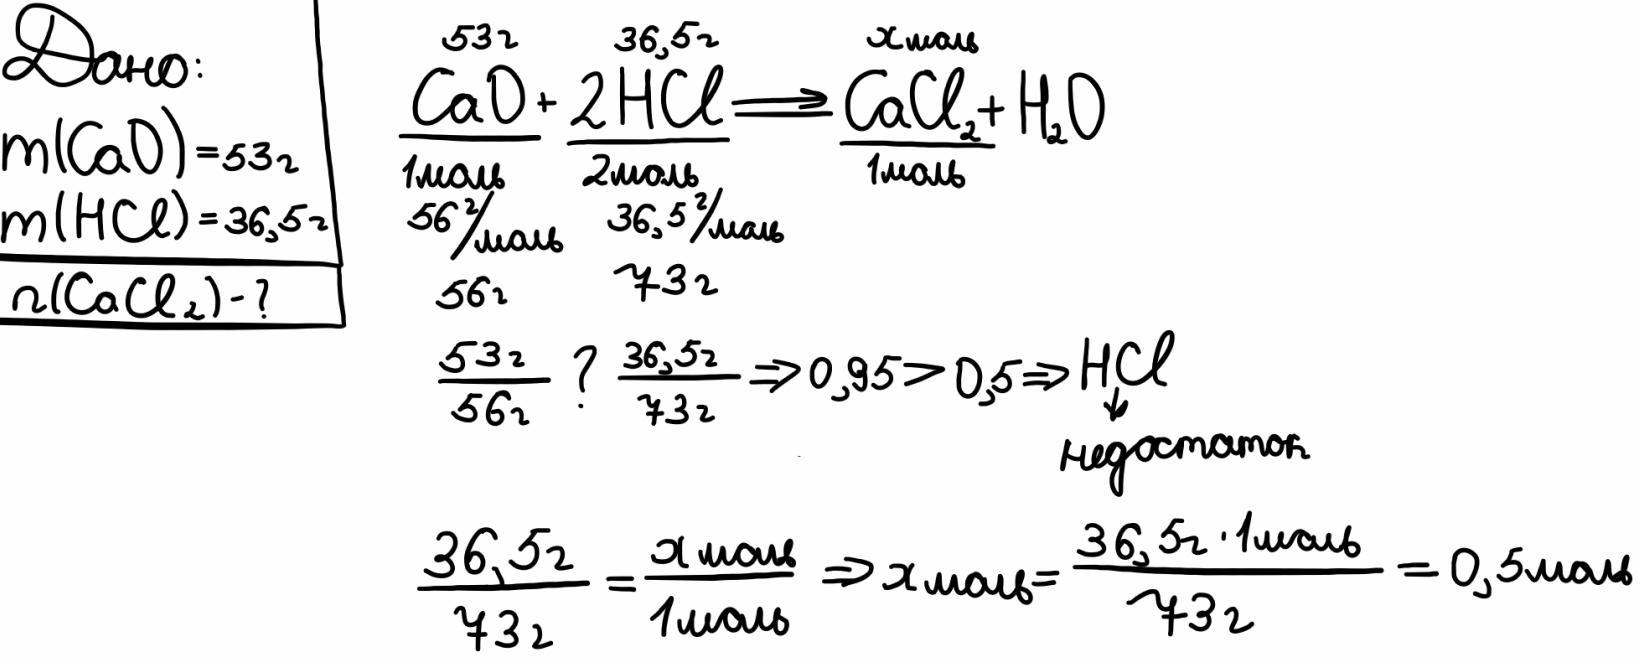 Дано:
m(CaO)=53г
m(HCl)=36,5г
n(CaCl₂)-?
53г 36,5г x моль
CaO + 2HCl ⟹ CaCl₂ + H₂O
1моль 2моль 1моль
56 г/моль 36,5 г/моль
56г 73г
53г/56г ? 36,5г/73г ⇒ 0,95 > 0,5 ⇒ HCl
↓
недостаток
36,5г/73г = x моль/1моль ⇒ x моль = 36,5г · 1моль/73г = 0,5моль